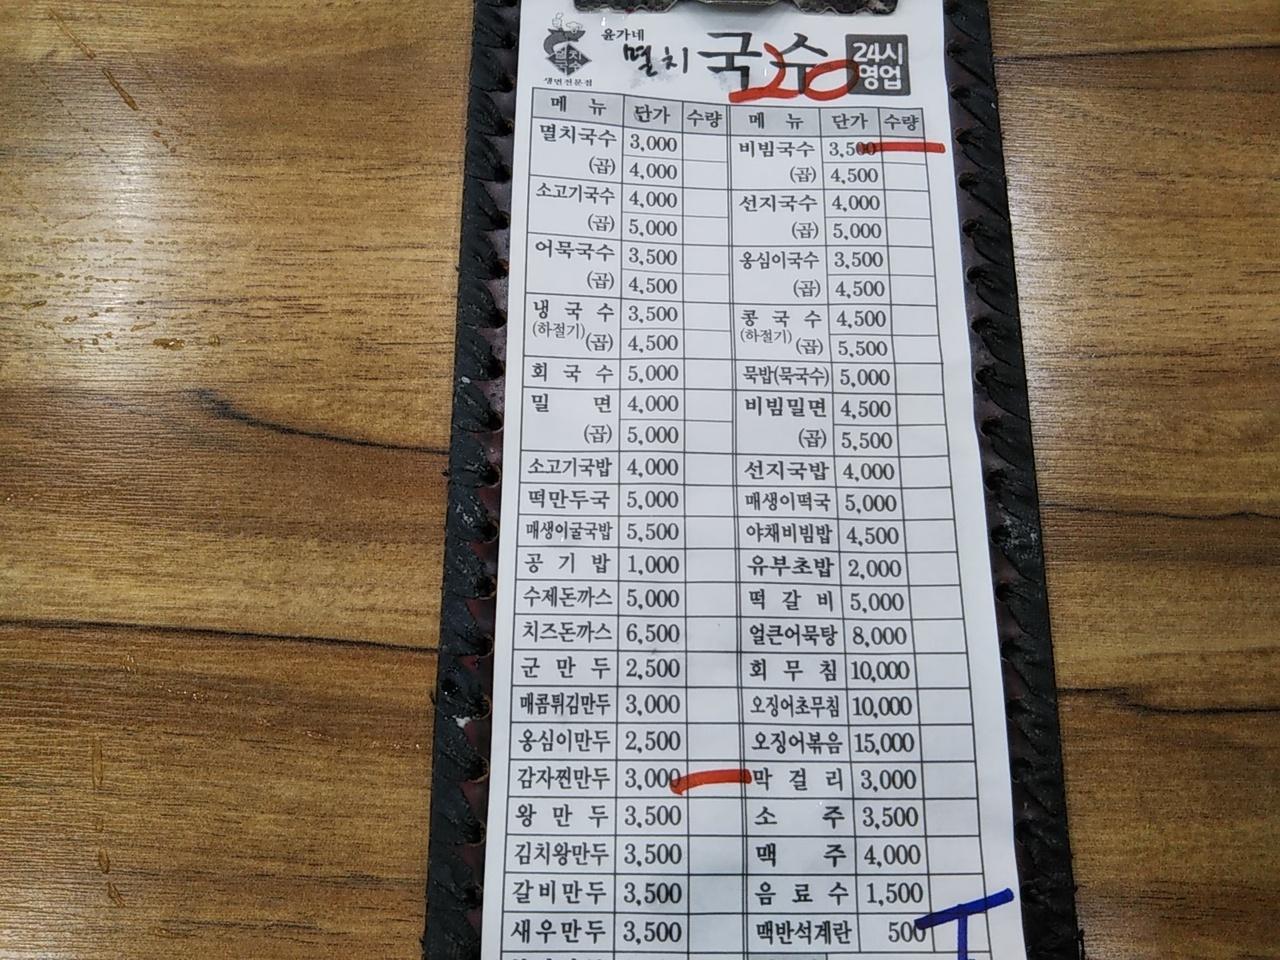 윤가네
멸치국수
24시
영업
멸치
국수
생면전문점
20
메 뉴 단가 수량 메 뉴 단가 수량
멸치국수 3,000 비빔국수 3,500
(곱) 4,000 (곱) 4,500
소고기국수 4,000 선지국수 4,000
(곱) 5,000 (곱) 5,000
어묵국수 3,500 옹심이국수 3,500
(곱) 4,500 (곱) 4,500
냉 국 수 3,500 콩 국 수 4,500
(하절기) (곱) 4,500 (하절기) (곱) 5,500
회 국 수 5,000 묵밥(묵국수) 5,000
밀 면 4,000 비빔밀면 4,500
(곱) 5,000 (곱) 5,500
소고기국밥 4,000 선지국밥 4,000
떡만두국 5,000 매생이떡국 5,000
매생이굴국밥 5,500 야채비빔밥 4,500
공 기 밥 1,000 유부초밥 2,000
수제돈까스 5,000 떡 갈 비 5,000
치즈돈까스 6,500 얼큰어묵탕 8,000
군 만 두 2,500 회 무 침 10,000
매콤튀김만두 3,000 오징어초무침 10,000
옹심이만두 2,500 오징어볶음 15,000
감자찐만두 3,000 막 걸 리 3,000
왕 만 두 3,500 소 주 3,500
김치왕만두 3,500 맥 주 4,000
갈비만두 3,500 음 료 수 1,500
새우만두 3,500 맥반석계란 500